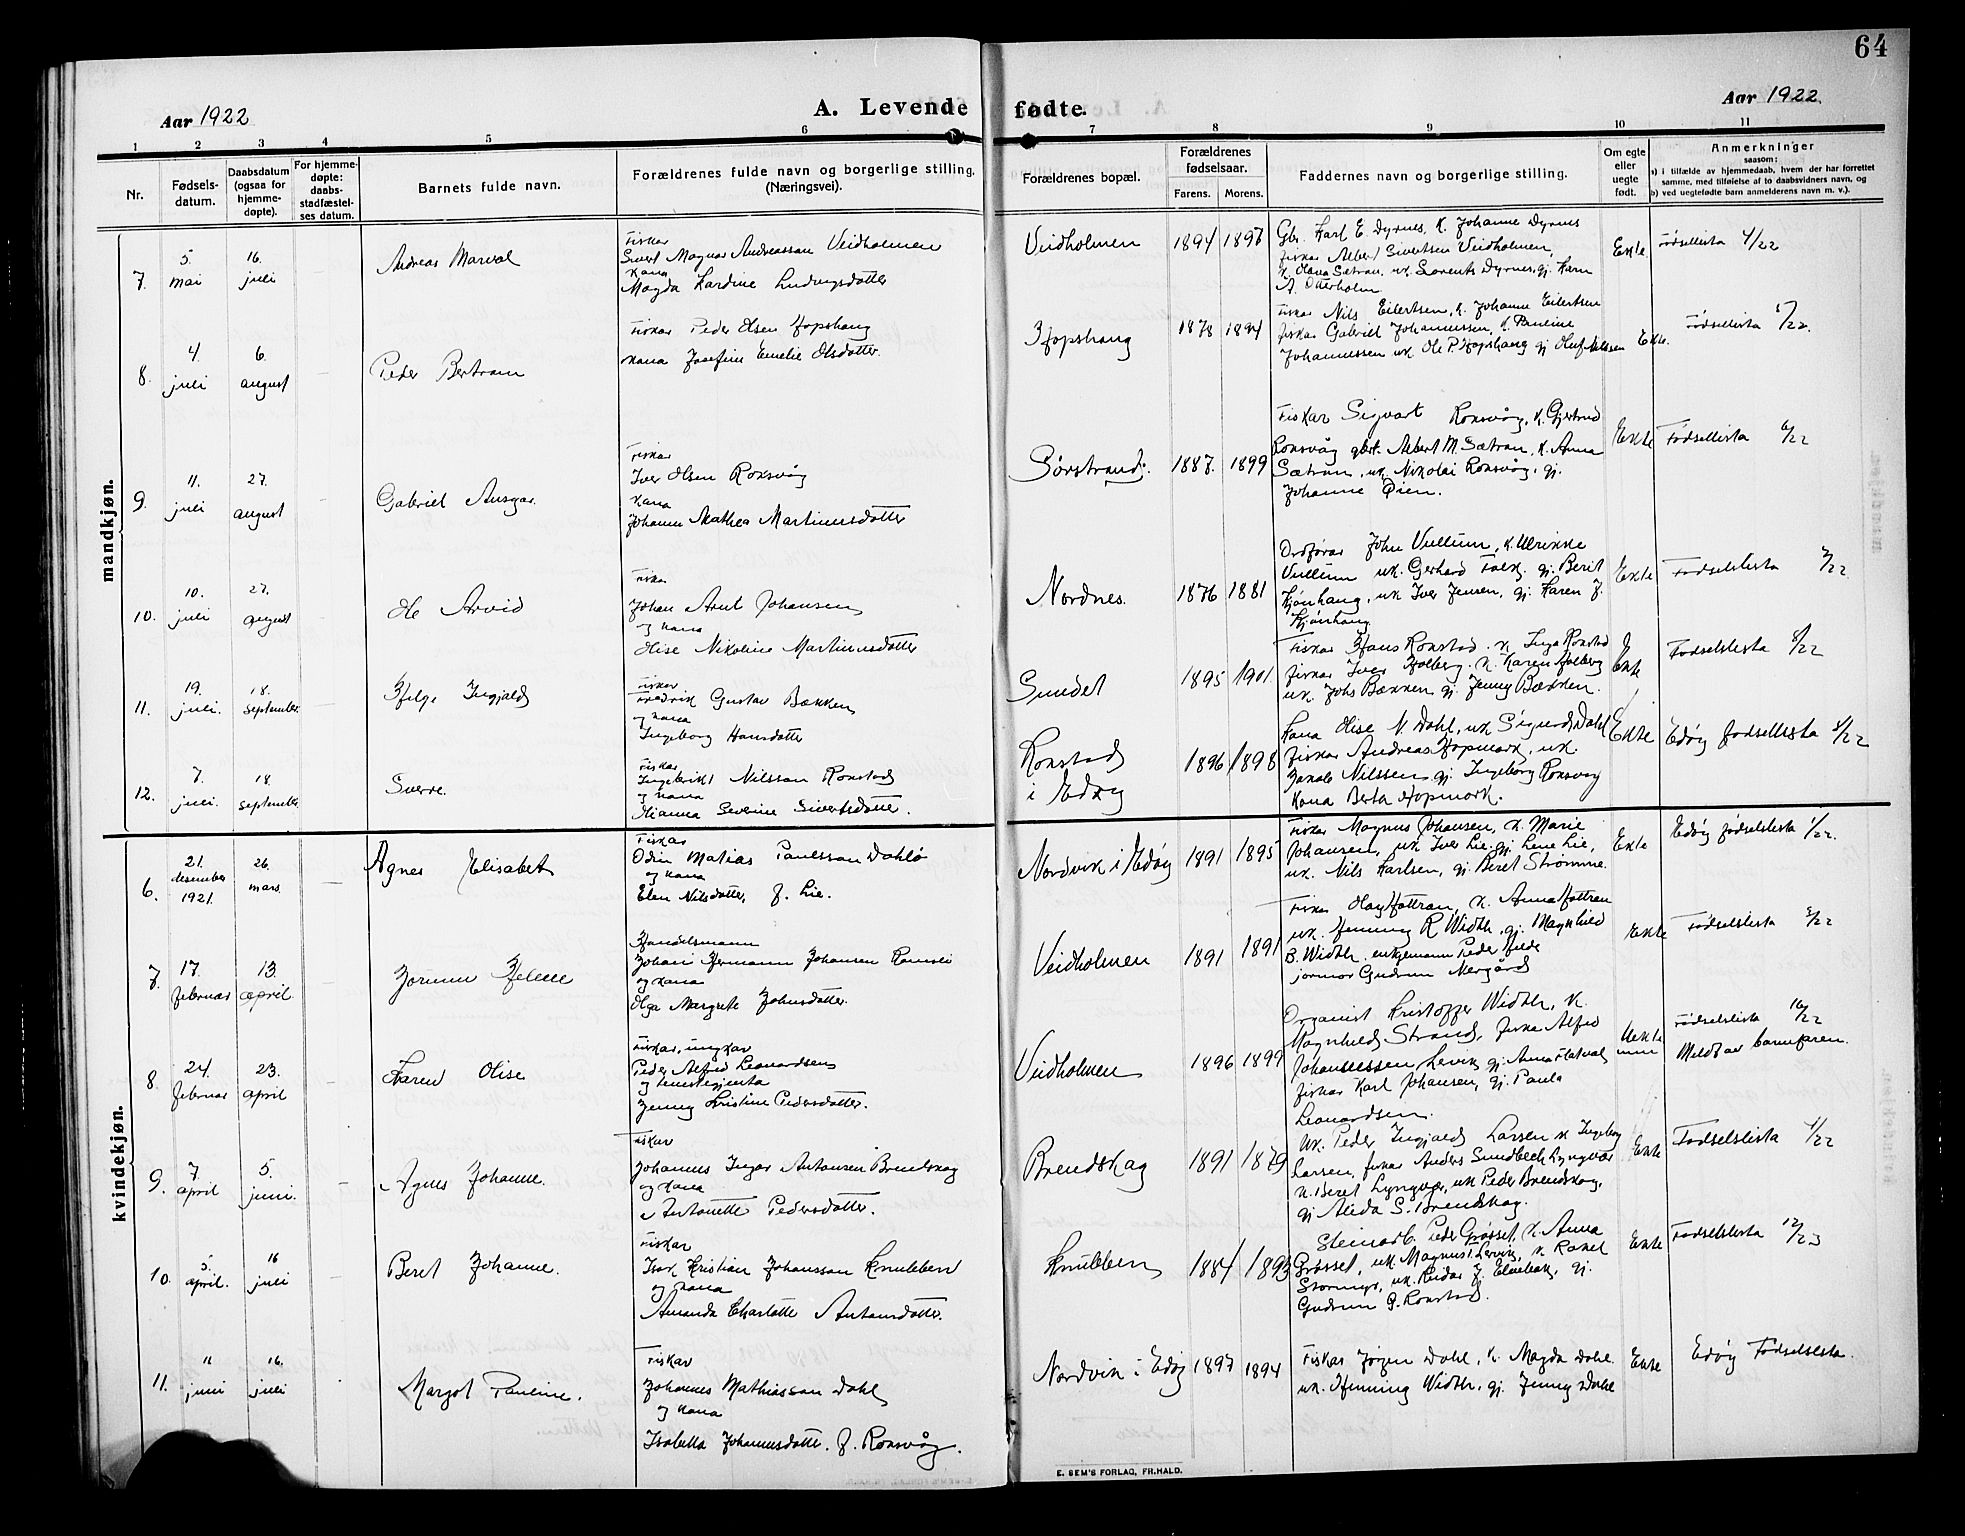 64
Aar 1922
A. Levende fødte.
Aar 1922.
1 2 3 4 5 6 7 8 9 10 11
Nr.
Fødsels-
datum.
Daabsdatum
(ogsaa for
hjemme-
døpte).
For hjemme-
døpte:
daabs-
stadfæstel-
ses datum.
Barnets fulde navn.
Forældrenes fulde navn og borgerlige stilling.
(Næringsvei).
Forældrenes bopæl.
Forældrenes
fødselsaar.
Farens. Morens.
Faddernes navn og borgerlige stilling.
Om egte
eller
uegte
født.
Anmerkninger
saasom:
a) i tilfælde av hjemmedaab, hvem der har forrettet
samme, med tilføielse af to daabsvidners navn, og
b) ved uegtefødte barn anmelderens navn m. v.).
mandkjøn.
7. 5. mai
16. juli
Andreas Marval
Fiskar
Sivert Magnus Andreassan Veidholmen
Kana
Magda Kardine Ludvigsdatter
Veidholmen
1894 1897
Gbr. Karl E. Dyrnes, K. Johanne Dyrnes
fiskar Albert Sivertsen Veidholmen,
K. Olava Sætran, uk. Sorents Dyrnes, gj. Karn
A. Otterholm
Ekte
Fødsellista 4/22
8. 4. juli
6. august
Peder Bertram
Fiskar Peder Olsen Hopshaug
Kana Josefine Emelie Olsdatter.
Hopshaug
1878 1894
Fiskar Nils Eilertsen, K. Johanne Eilertsen
fiskar Gabriel Johannessen, K. Pauline
Johannessen uk. Ole P. Hopshaug gj Oluf Nilssen
Ekte.
Fødsellista /22.
9. 11. juli
27. august
Gabriel Ansgar.
Fiskar
Iver Olsen Roksvåg
Kana
Johanne Mathea Martinusdatter
Sørstrand.
1887. 1899
Fiskar Sigvart Roksvåg, K. Gjertrud
Roksvåg gbr. Albert M. Sætran, K. Anna
Sætran, uk. Nikolai Roksvåg, gj.
Johanne Øien.
Ekte
Fødsellista 6/22
10. 10. juli
27. august
Ole Arvid
Fiskar
Johan Arnt Johansen
og Kana
Olise Nikoline Martinusdatter
Nordnes.
1876 1881
Ordførar John Vullum, K. Ulrikke
Vullum uk. Gerhard Falk, gj. Berit
Kjønhaug, uk Iver Jensen, gj. Karen J.
Kjønhaug
Ekte
Fødselslista 7/22.
11. 19. juli.
18. september
Helge Ingjald
Fiskar
Fredrik Gustav Bækken
og Kana
Ingeborg Hansdatter
Sundet
1895 1901.
Fiskar Hans Ronstad. K Inga Ronstad
fiskar Iver Holberg. K. Karen Holberg
uk. Johs Bækken gj. Jenny Bækken.
Ekte
Fødselslista 8/22
12. 7. juli.
18. september.
Sverre.
Fiskar
Ingebrikt Nilssan Ronstad
og Kana
Hanna Severine Sivertsdatter.
Ronstad
i Edøy
1896 1898
Kana Olise N. Dahl, uk Sigurd Dahl
fiskar Andreas Hopmark, uk.
Jakob Nilssen gj. Ingeborg Roksvåg
Kana Berta Hopmark.
Ekte
Edøy fødsellista /22
kvindekjøn.
6. 21. desember 1921.
26. mars
Agnes Elisabet
Fiskar
Odin Matias Paulssan Dahlø
og Kana
Elen Nilsdatter, f. Lie.
Nordvik i Edøy
1891 1895
Fiskar Magnus Johansen, K. Marie
Johansen, uk. Iver Lie. gj. Lene Lie,
uk. Nils Karlsen, gj. Beret Strømme.
Ekte
Edøy fødselslista 1/22.
7. 17. februar
13. april.
Jorunn Helene
Handelsmann
Johan Hermann Johansen Ramsli
og Kana
Olga Margrete Johnsdatter.
Veidholmen
1891 1891
Fiskar Olay Hattran, K. Anna Hattran
uk. Henning R Width, gj. Magnhild
B. Width. enkjemann Peder Hilde
jormor Gudrun Nergård
Ekte
Fødselslista 2/22
8. 24. februar
23. april
Karen Olise
Fiskar, ungkar
Peder Alfred Leonardsen
og tenestegjenta
Jenny Kristine Pedersdatter.
Veidholmen
1896 1899
Organist Kristoffer Width, K.
Magnhild Strand, fiskar Alfred
Johannessen Levik, gj. Anna Flatval
fiskar Karl Johansen, gj. Paula
Leonardsen.
Uekte
Fødselslista 16/22
Meldt av barnefaren.
9. 7. april
5. juni.
Agnes Johanne.
Fiskar
Johannes Ingar Antonsen Brendskag
og Kana
Antonette Pedersdatter.
Brendskag
1891 1879
Uk. Peder Ingjald Larsen K Ingeborg
Larsen, fiskar Anders Sundbech Lyngvær
K. Beret Lyngvær, uk Peder Brendskag,
gj Alida S. Brendskag.
Ekte
Fødselslista 4/22
10. 5. april.
16 juli
Beret Johanne.
Fiskar
Isak Kristian Johanssan Knubben
og Kana
Amanda Charlotte Antonsdatter.
Knubben
1884 1893
Steinarb. Peder Grøsset, K. Anna
Grøsset, uk. Magnus Lervik, K. Rakel
uk. Reidar J. gj.
Gudrun G. Ronstad.
Ekte
Fødselslista 12/23
11. 11 juni
16. juli
Margot Pauline.
Fiskar
Johannes Mathiassan Dahl
og Kana
Isabella Johannesdatter. f. Roksvåg.
Nordvik i Edøy
1897 1894
Fiskar Jørgen Dahl, K. Magda Dahl.
uk. Henning Width, gj. Jenny Dahl
Ekte
Edøy Fødselslista.
E. SEM'S FORLAG, FR.HALD.